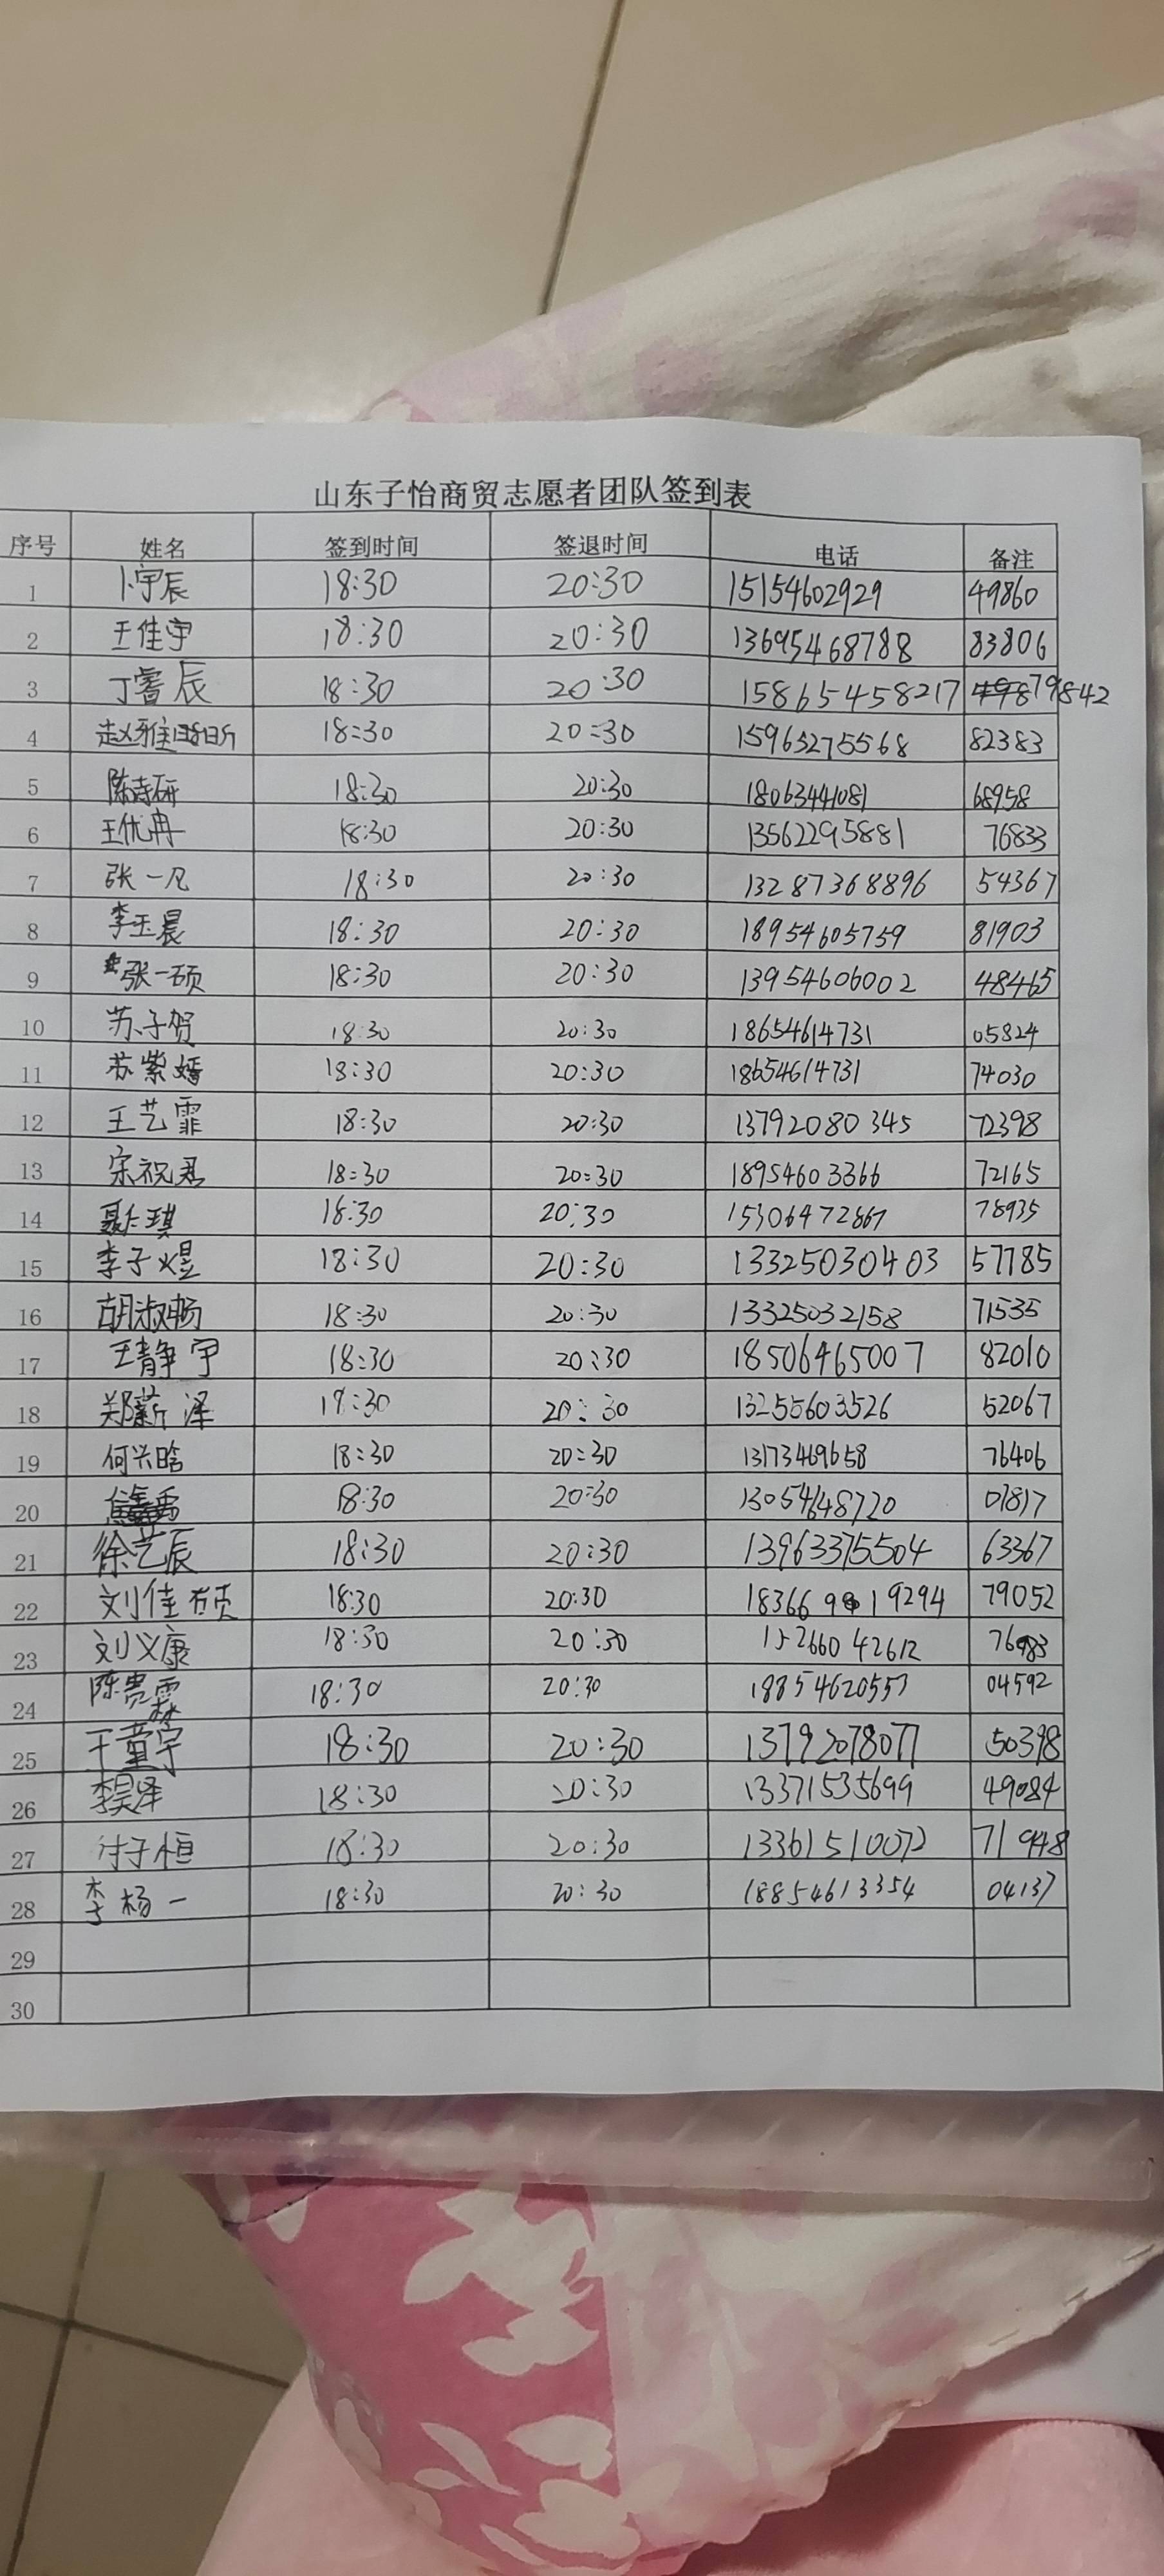 山东子怡商贸志愿者团队签到表
序号 姓名 签到时间 签退时间 电话 备注
1 卜宇辰 18:30 20:30 15154602929 49860
2 王佳宇 18:30 20:30 13695468788 83806
3 丁睿辰 18:30 20:30 15865458217 79842
4 赵雅 18:30 20:30 15965275568 82383
5 陈诗研 18:30 20:30 18063441081 68958
6 王优冉 18:30 20:30 13562295881 76833
7 张一凡 18:30 20:30 13287368896 54367
8 李玉晨 18:30 20:30 18954605759 81903
9 张一硕 18:30 20:30 13954606002 48465
10 苏子贺 18:30 20:30 18654614731 05824
11 苏紫嫣 18:30 20:30 18654614731 74030
12 王艺霏 18:30 20:30 13792080345 72398
13 宋祝君 18:30 20:30 18954603366 72165
14 聂仁琪 18:30 20:30 15306472867 78935
15 李子煜 18:30 20:30 13325030403 57785
16 胡淑畅 18:30 20:30 13325032158 71535
17 王静宇 18:30 20:30 18506465007 82010
18 郑薪泽 18:30 20:30 13255603526 52067
19 何兴晗 18:30 20:30 13173469658 76406
20 18:30 20:30 13054648720 01817
21 徐艺辰 18:30 20:30 13963375504 63367
22 刘佳硕 18:30 20:30 79052
23 刘义康 18:30 20:30 15266042612 76983
24 陈贵霖 18:30 20:30 18854620553 04592
25 王童宇 18:30 20:30 13792078077 50398
26 李昊泽 18:30 20:30 13371535699 49084
27 付子恒 18:30 20:30 13361510072 71948
28 李杨一 18:30 20:30 18854613354 04137
29
30